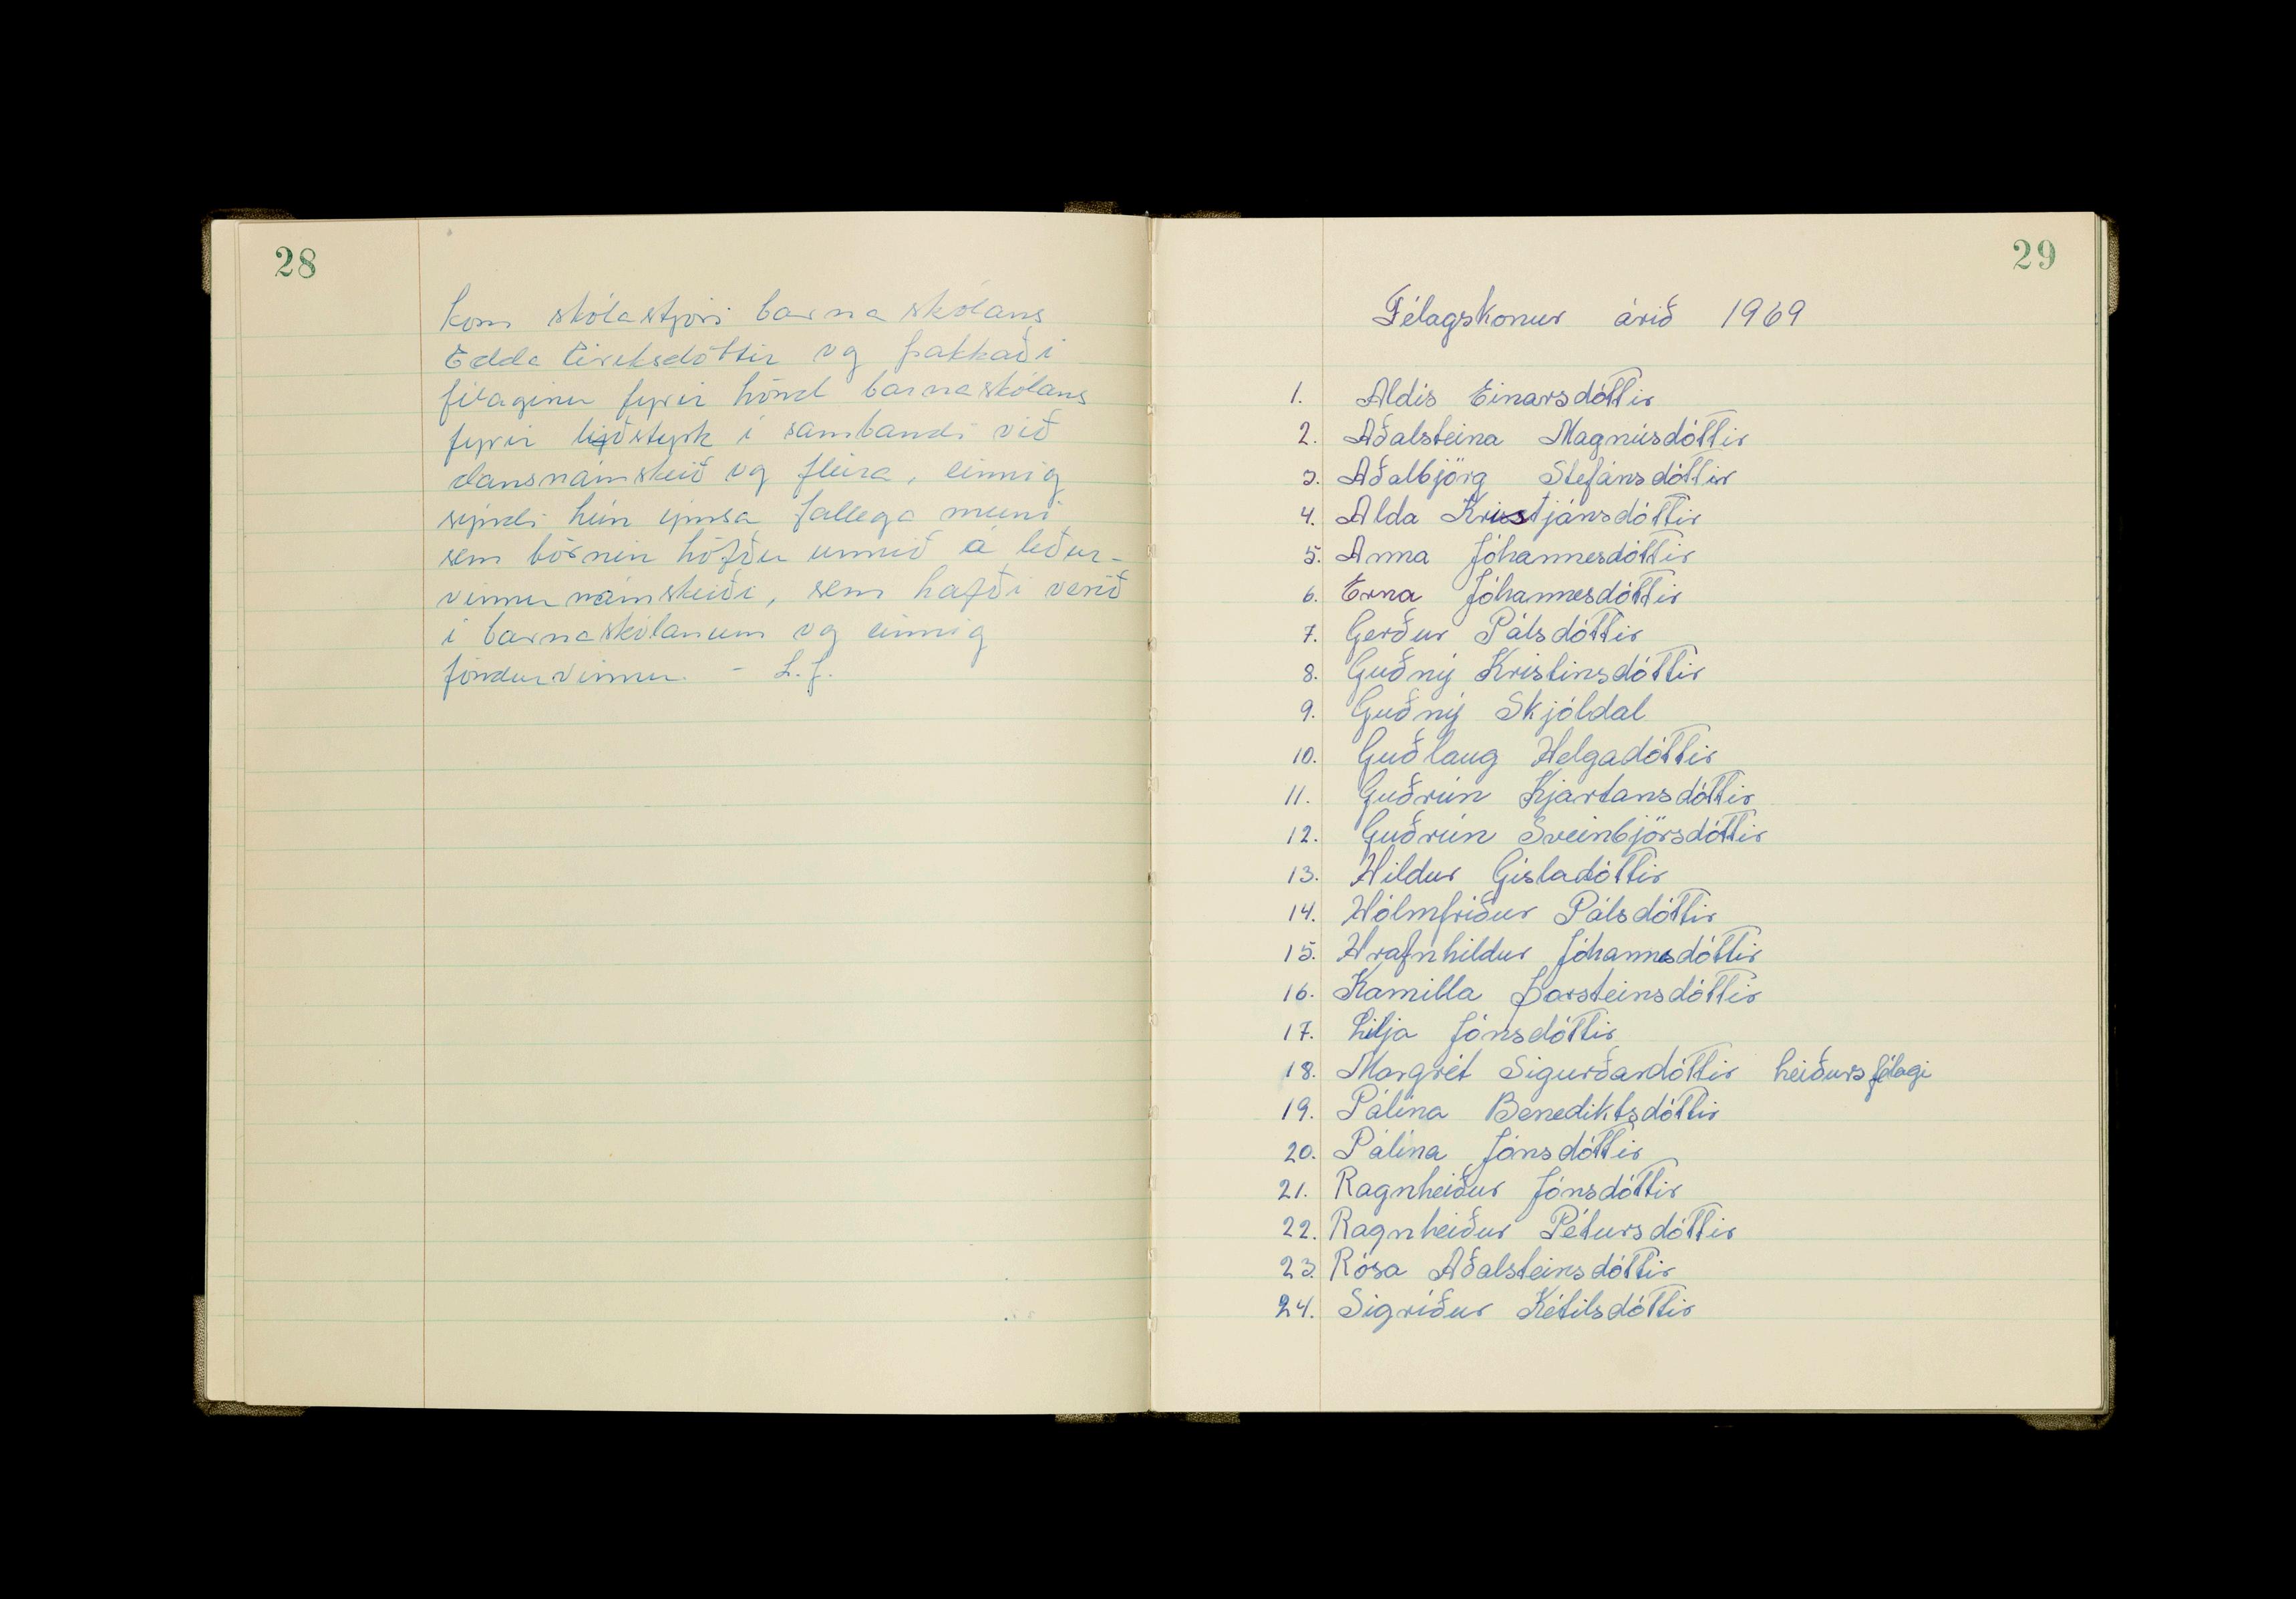 28
kom skólastjóri barnaskólans
Edda Eiríksdóttir og þakkaði
félaginu fyrir hönd barnaskólans
fyrir liðstyrk í sambandi við
dansnámskeið og fleira, einnig
sýndi hún ýmsa fallega muni
sem börnin höfðu unnið á leður-
vinnunámskeiði, sem hafði verið
í barnaskólanum og einnig
föndurvinnu. - L.J.
29
Félagskonur árið 1969
1. Aldís Einarsdóttir
2. Aðalsteina Magnúsdóttir
3. Aðalbjörg Stefánsdóttir
4. Alda Kristjánsdóttir
5. Anna Jóhannesdóttir
6. Erna Jóhannesdóttir
7. Gerður Pálsdóttir
8. Guðný Kristinsdóttir
9. Guðný Skjóldal
10. Guðlaug Helgadóttir
11. Guðrún Kjartansdóttir
12. Guðrún Sveinbjörsdóttir
13. Hildur Gísladóttir
14. Hólmfríður Pálsdóttir
15. Hrafnhildur Jóhannesdóttir
16. Kamilla Þorsteinsdóttir
17. Lilja Jónsdóttir
18. Margrét Sigurðardóttir heiðursfélagi
19. Pálína Benediktsdóttir
20. Pálína Jónsdóttir
21. Ragnheiður Jónsdóttir
22. Ragnheiður Pétursdóttir
23. Rósa Aðalsteinsdóttir
24. Sigríður Ketilsdóttir